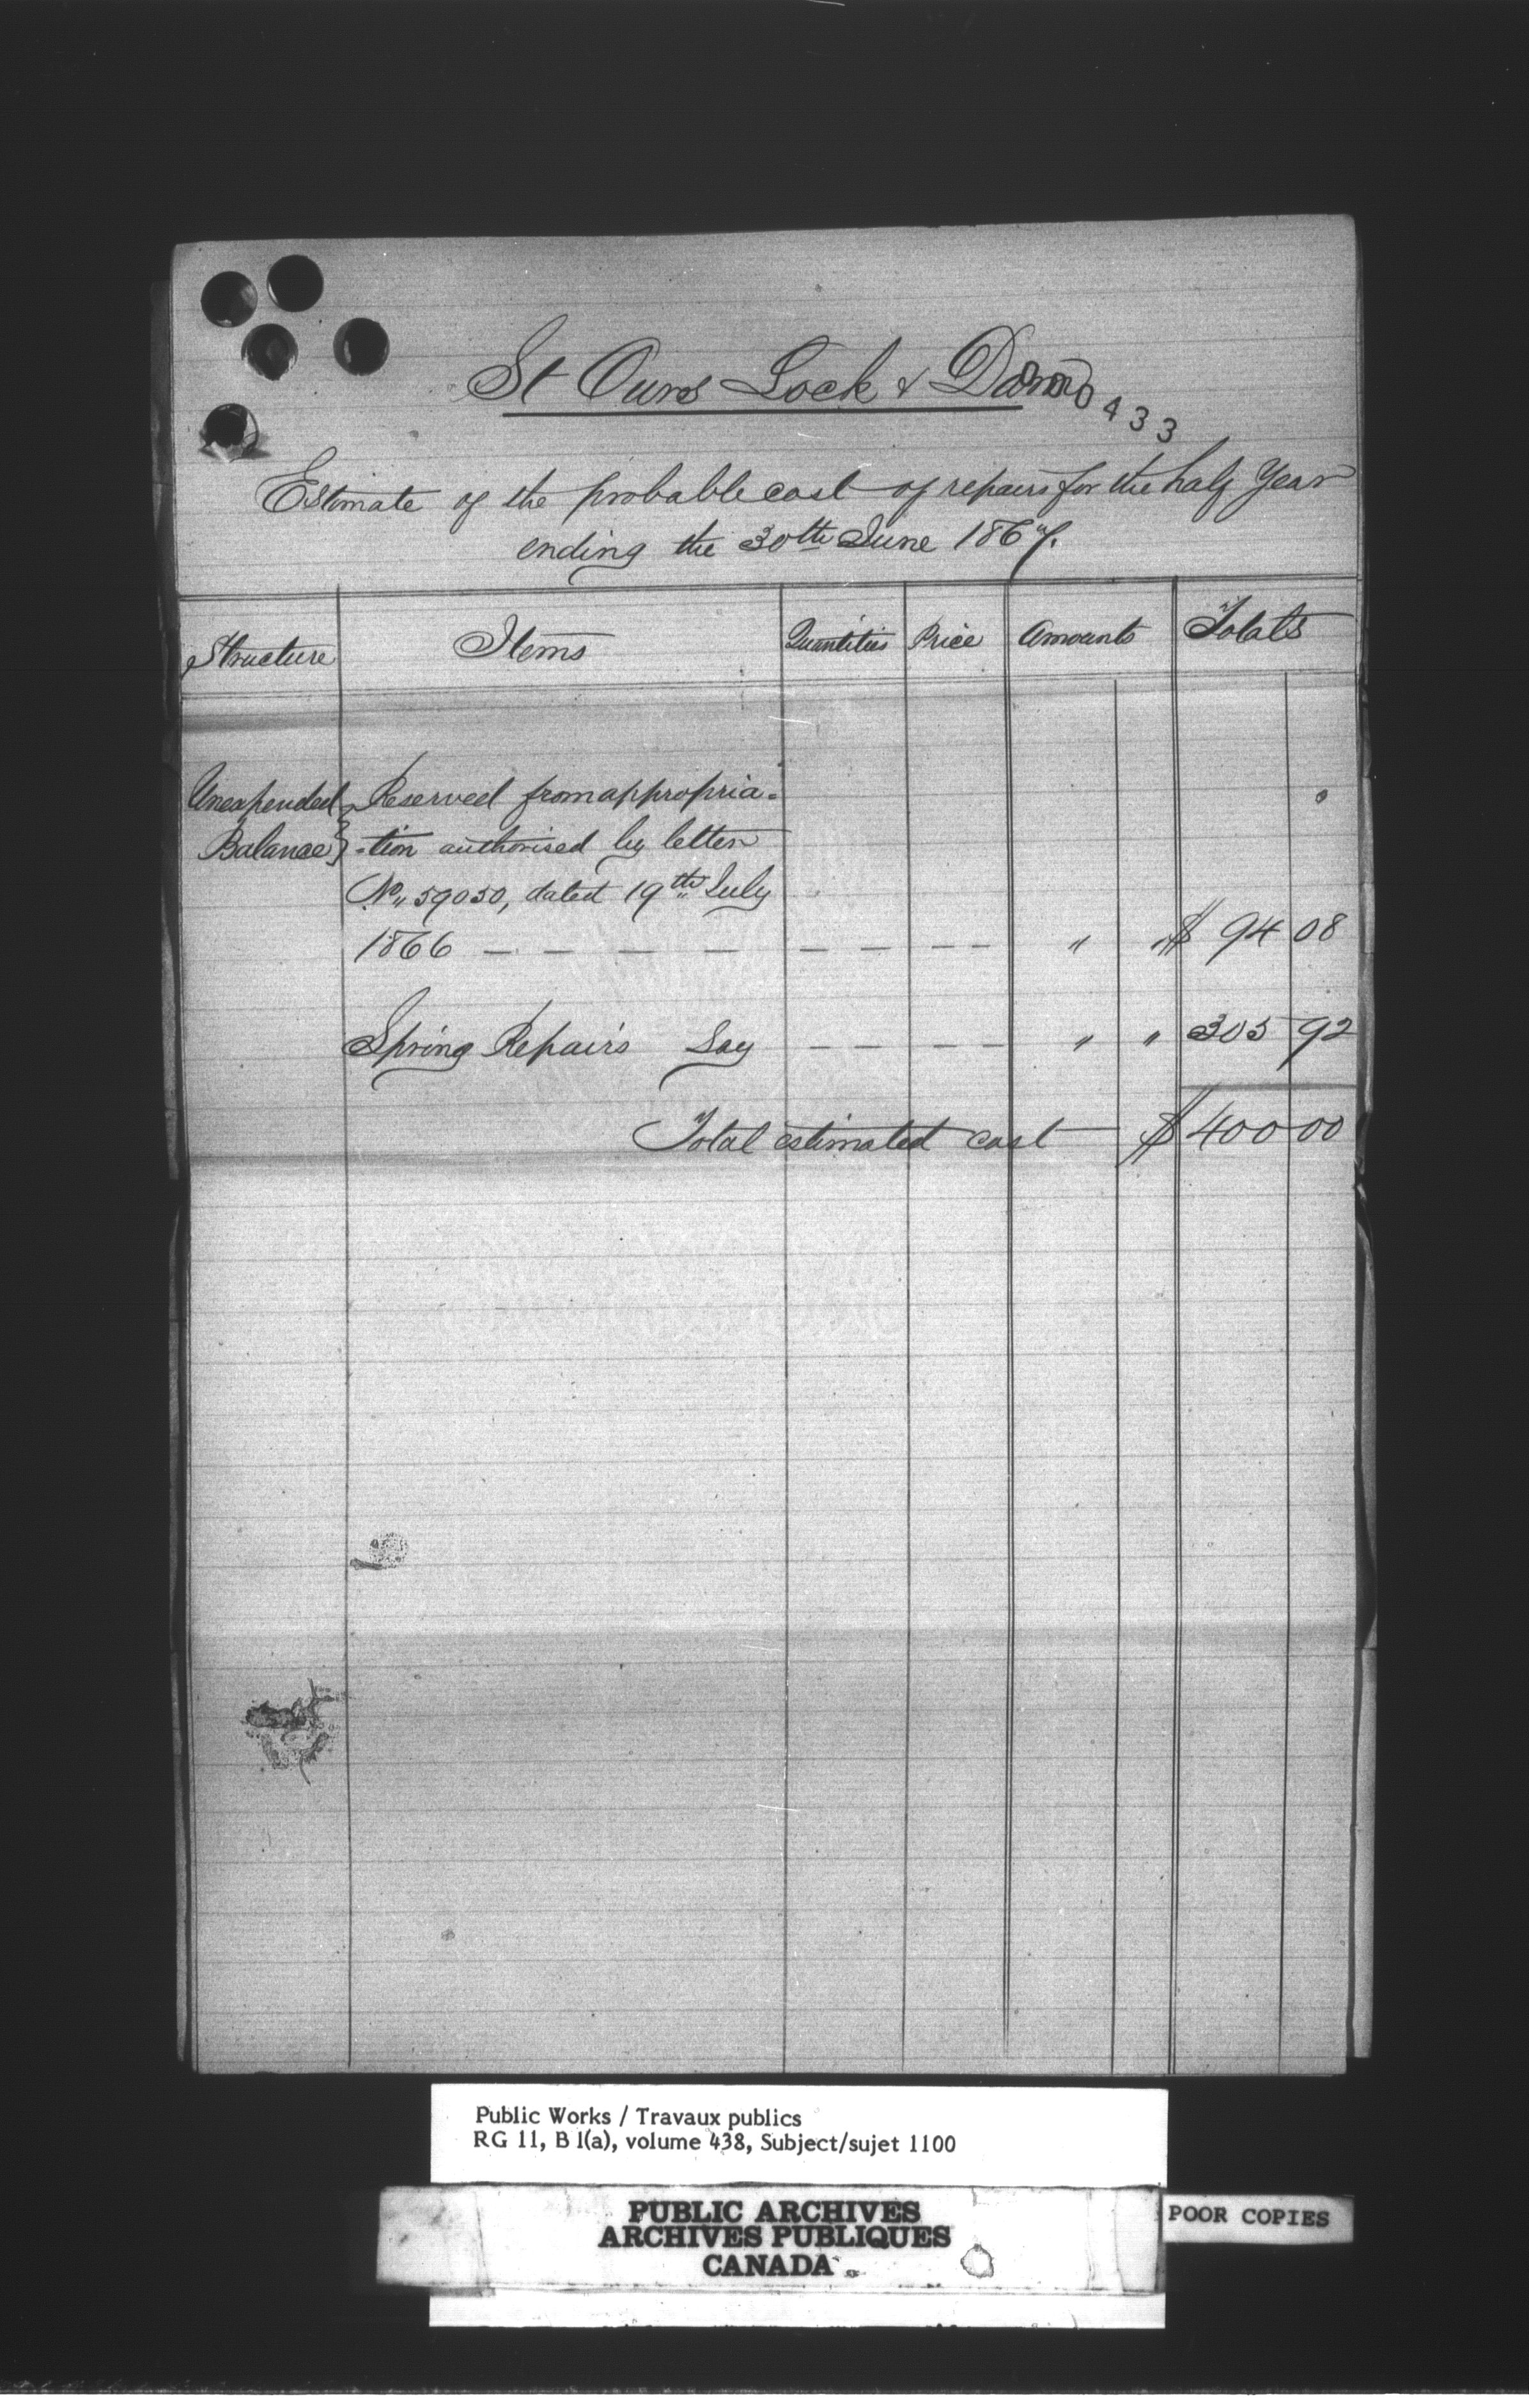 St Ours Lock & Dam
433
Estimate of the probable cost of repairs for the half Year
ending the 30th June 1867.
Structure Items Quantities Price Amounts Totals
Unexpended } Reserved from appropria-
Balance } -tion authorised by letter
No 59050, dated 19th July
1866 — — — — — — — — " " $ 94 08
Spring Repairs Say — — — — — " " 305 92
Total estimated cost — $ 400 00
Public Works / Travaux publics
RG 11, B 1(a), volume 438, Subject/sujet 1100
PUBLIC ARCHIVES
ARCHIVES PUBLIQUES
CANADA
POOR COPIES